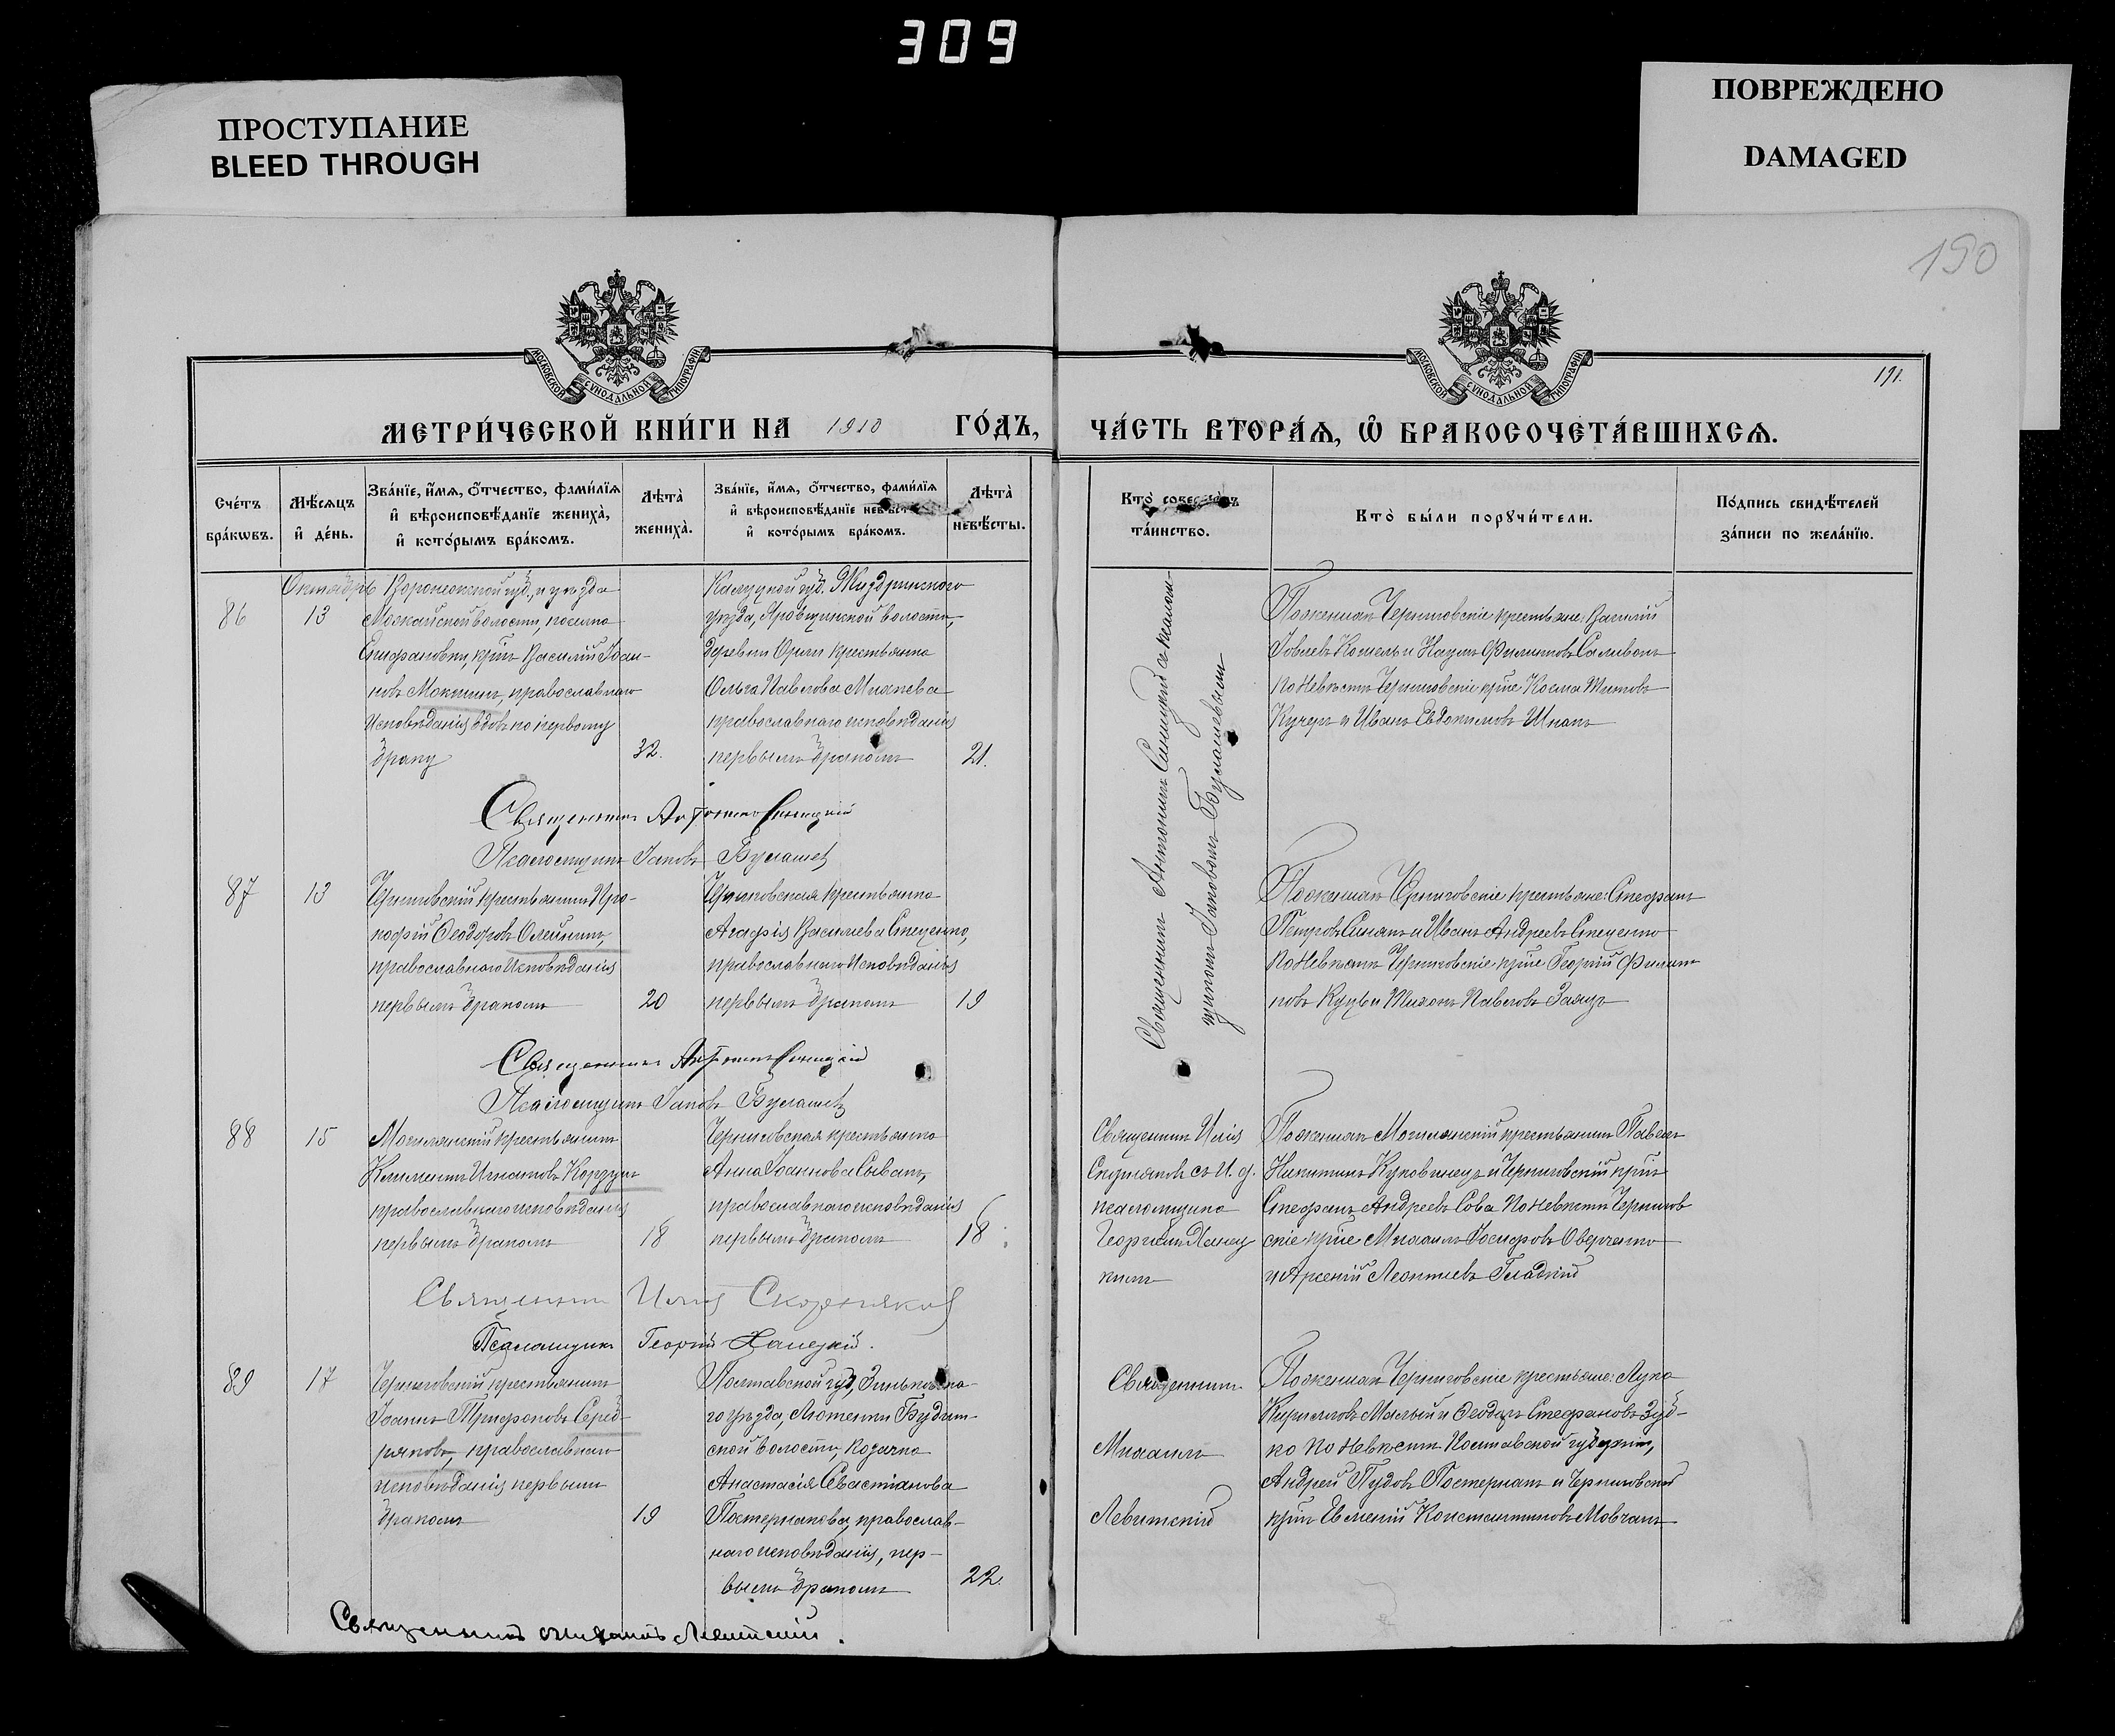 309
ПРОСТУПАНИЕ
BLEED THROUGH
ПОВРЕЖДЕНО
DAMAGED
190
191.
МОСКОВСКОЙ СѴНОДАЛЬНОЙ ТИПОГРАФІИ
МОСКОВСКОЙ СѴНОДАЛЬНОЙ ТИПОГРАФІИ
МЕТРИ́ЧЕСКОЙ КНИ́ГИ НА 1910 ГО́ДЪ,
ЧА́СТЬ ВТОРА́Ѧ, Ѡ҆ БРАКОСОЧЕТА́ВШИХСѦ.
Сче́тъ бра́кѡвъ.
Мѣ́сѧцъ и҆ де́нь.
Зва́нїе, и҆́мѧ, ѻ҆́тчество, фами́лїѧ и҆ вѣроисповѣ́данїе жениха̀, и҆ кото́рымъ бра́комъ.
Лѣта̀ жениха̀.
Зва́нїе, и҆́мѧ, ѻ҆́тчество, фами́лїѧ и҆ вѣроисповѣ́данїе невѣст и҆ кото́рымъ бра́комъ.
Лѣта̀ невѣ́сты.
Кто̀ соверша́лъ та́инство.
Кто̀ бы́ли порꙋчи́тели.
По́дпись свидѣ́телей за́писи по жела́нїю.
Октябрь
86
13
Воронежской губ., и уѣзда
волости, поселка
крᵗⁿъ Василій Іоан-
новъ православнаго
исповѣданія вдовъ по первому
браку
32.
Калужской губ. Жиздринскаго
уѣзда, волости,
деревни крестьянка
Ольга Павлова
православнаго исповѣданія
первымъ бракомъ
21.
Священникъ Антоній Синицкій съ псалом-
щикомъ Іаковомъ Буслаевымъ
По женихѣ Черниговскіе крестьяне: Василій
Іовлевъ Кошель и Наумъ Филиповъ Саливонъ
По невѣстѣ Черниговскіе крᵗⁿе Косма Титовъ
Кучеръ и Иванъ Евдокимовъ Шпакъ
Священникъ Антоній Синицкій
Псаломщикъ Іаковъ Буслаевъ
87
13
Черниговскій крестьянинъ Про-
кофій Ѳеодоровъ Олейникъ,
православнаго исповѣданія
первымъ бракомъ
20
Черниговская крестьянка
Агафія Василіева Стеценко,
православнаго исповѣданія
первымъ бракомъ
19
По женихѣ Черниговскіе крестьяне: Стефанъ
Петровъ и Иванъ Андреевъ Стеценко
По невѣстѣ Черниговскіе крᵗⁿе Георгій Филип-
повъ Куцъ и Тихонъ Павловъ Заяцъ
Священникъ Антоній Синицкій
Псаломщикъ Іаковъ Буслаевъ
88
15
крестьянинъ
Климентъ Игнатовъ Кордунъ
православнаго исповѣданія
первымъ бракомъ
18
Черниговская крестьянка
Анна Іоаннова
православнаго исповѣданія
первымъ бракомъ
18
Священникъ Илія
Скорняковъ съ И. д.
псаломщика
Георгіемъ Ханец-
кимъ
По женихѣ крестьянинъ Павелъ
Никитинъ и Черниговскій крᵗⁿъ
Стефанъ Андреевъ Сова По невѣстѣ Чернигов
скіе крᵗⁿе Михаилъ Іосифовъ Оверченко
и Арсеній Леонтіевъ Гладкій
Священникъ Илія Скорняковъ
Псаломщикъ Георгій Ханецкій.
89
17
Черниговскій крестьянинъ
Іоаннъ Трифоновъ Серед-
ряковъ, православнаго
исповѣданія первымъ
бракомъ
19
Полтавской губ., Зиньковска-
го уѣзда, Лютенки Будин-
ской волости, козачка
Анастасія Севастіанова
Постернакова, православ-
наго исповѣданія, пер-
вымъ бракомъ
22.
Священникъ
Михаилъ
Левитскій
По женихѣ Черниговскіе крестьяне: Лука
Кирилловъ Малый и Ѳеодоръ Стефановъ Зуб-
ко По невѣстѣ Полтавской губерніи,
Андрей Пудовъ Постернакъ и Черниговскій
крᵗⁿъ Евменій Константиновъ Мовчанъ
Священникъ Михаилъ Левитскій.